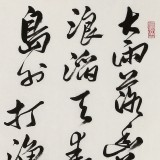 大雨落幽
浪滔天秦
島外打漁